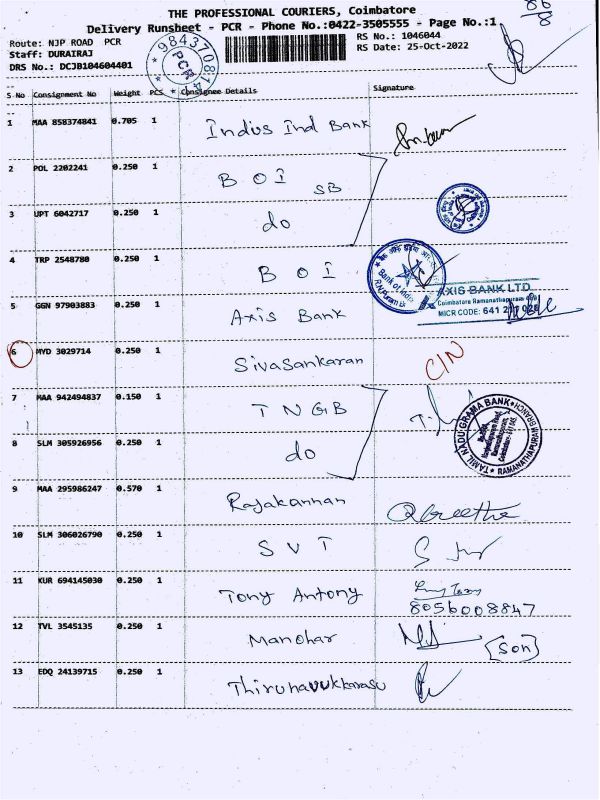 THE PROFESSIONAL COURIERS, Coimbatore
Delivery Runsheet - PCR - Phone No.:0422-3505555 - Page No.:1
Route: NJP ROAD PCR RS No.: 1046044
Staff: DURAIRAJ RS Date: 25-Oct-2022
DRS No.: DCJB104604401
PCR
S No Consignment No Weight PCS Consignee Details Signature
1 MAA 858374841 0.705 1 Indus Ind Bank
2 POL 2202241 0.250 1 BOI SB
3 UPT 6042717 0.250 1 do
4 TRP 2548780 0.250 1 BOI
Bank of India
AXIS BANK LTD.
Coimbatore Ramanathapuram
MICR CODE: 641 211
5 GGN 97903883 0.250 1 Axis Bank
6 MYD 3029714 0.250 1 Sivasankaran CIN
7 MAA 942494837 0.150 1 TNGB
TAMIL NADU GRAMA BANK
RAMANATHAPURAM BRANCH
8 SLM 305926956 0.250 1 do
9 MAA 295986247 0.570 1 Rajakannan
10 SLM 306026790 0.250 1 SVT
11 KUR 694145030 0.250 1 Tony Antony
8056008847
12 TVL 3545135 0.250 1 Manohar [Son]
13 EDQ 24139715 0.250 1 Thirunavukkarasu